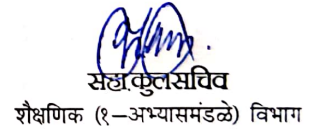 सहा.कुलसचिव
शैक्षणिक (१–अभ्यासमंडळे) विभाग